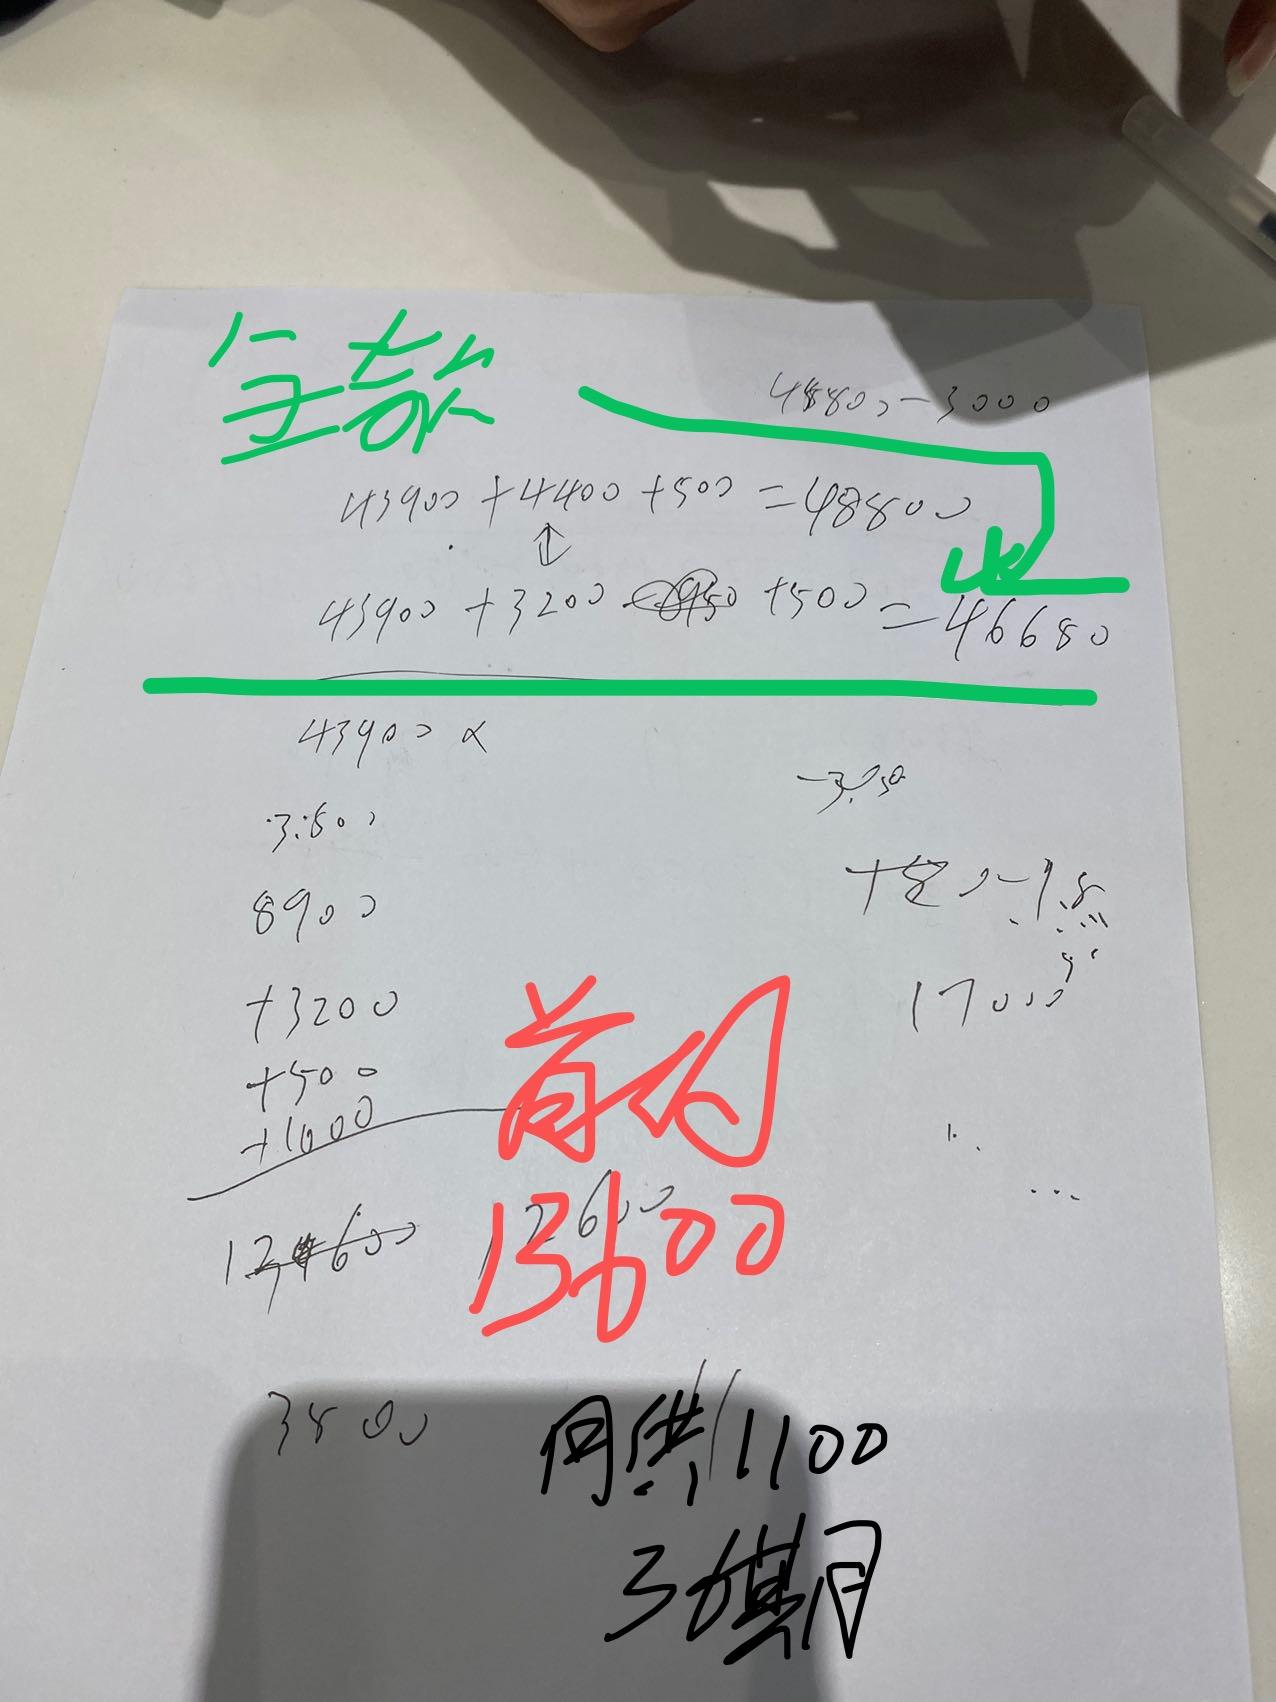 全款
48800-3000
43900+4400+500=48800
43900+3200 +500=46680
43900
8900
+3200
+500
+1000
首付
13600
12600
17000
3800
月供1100
36期